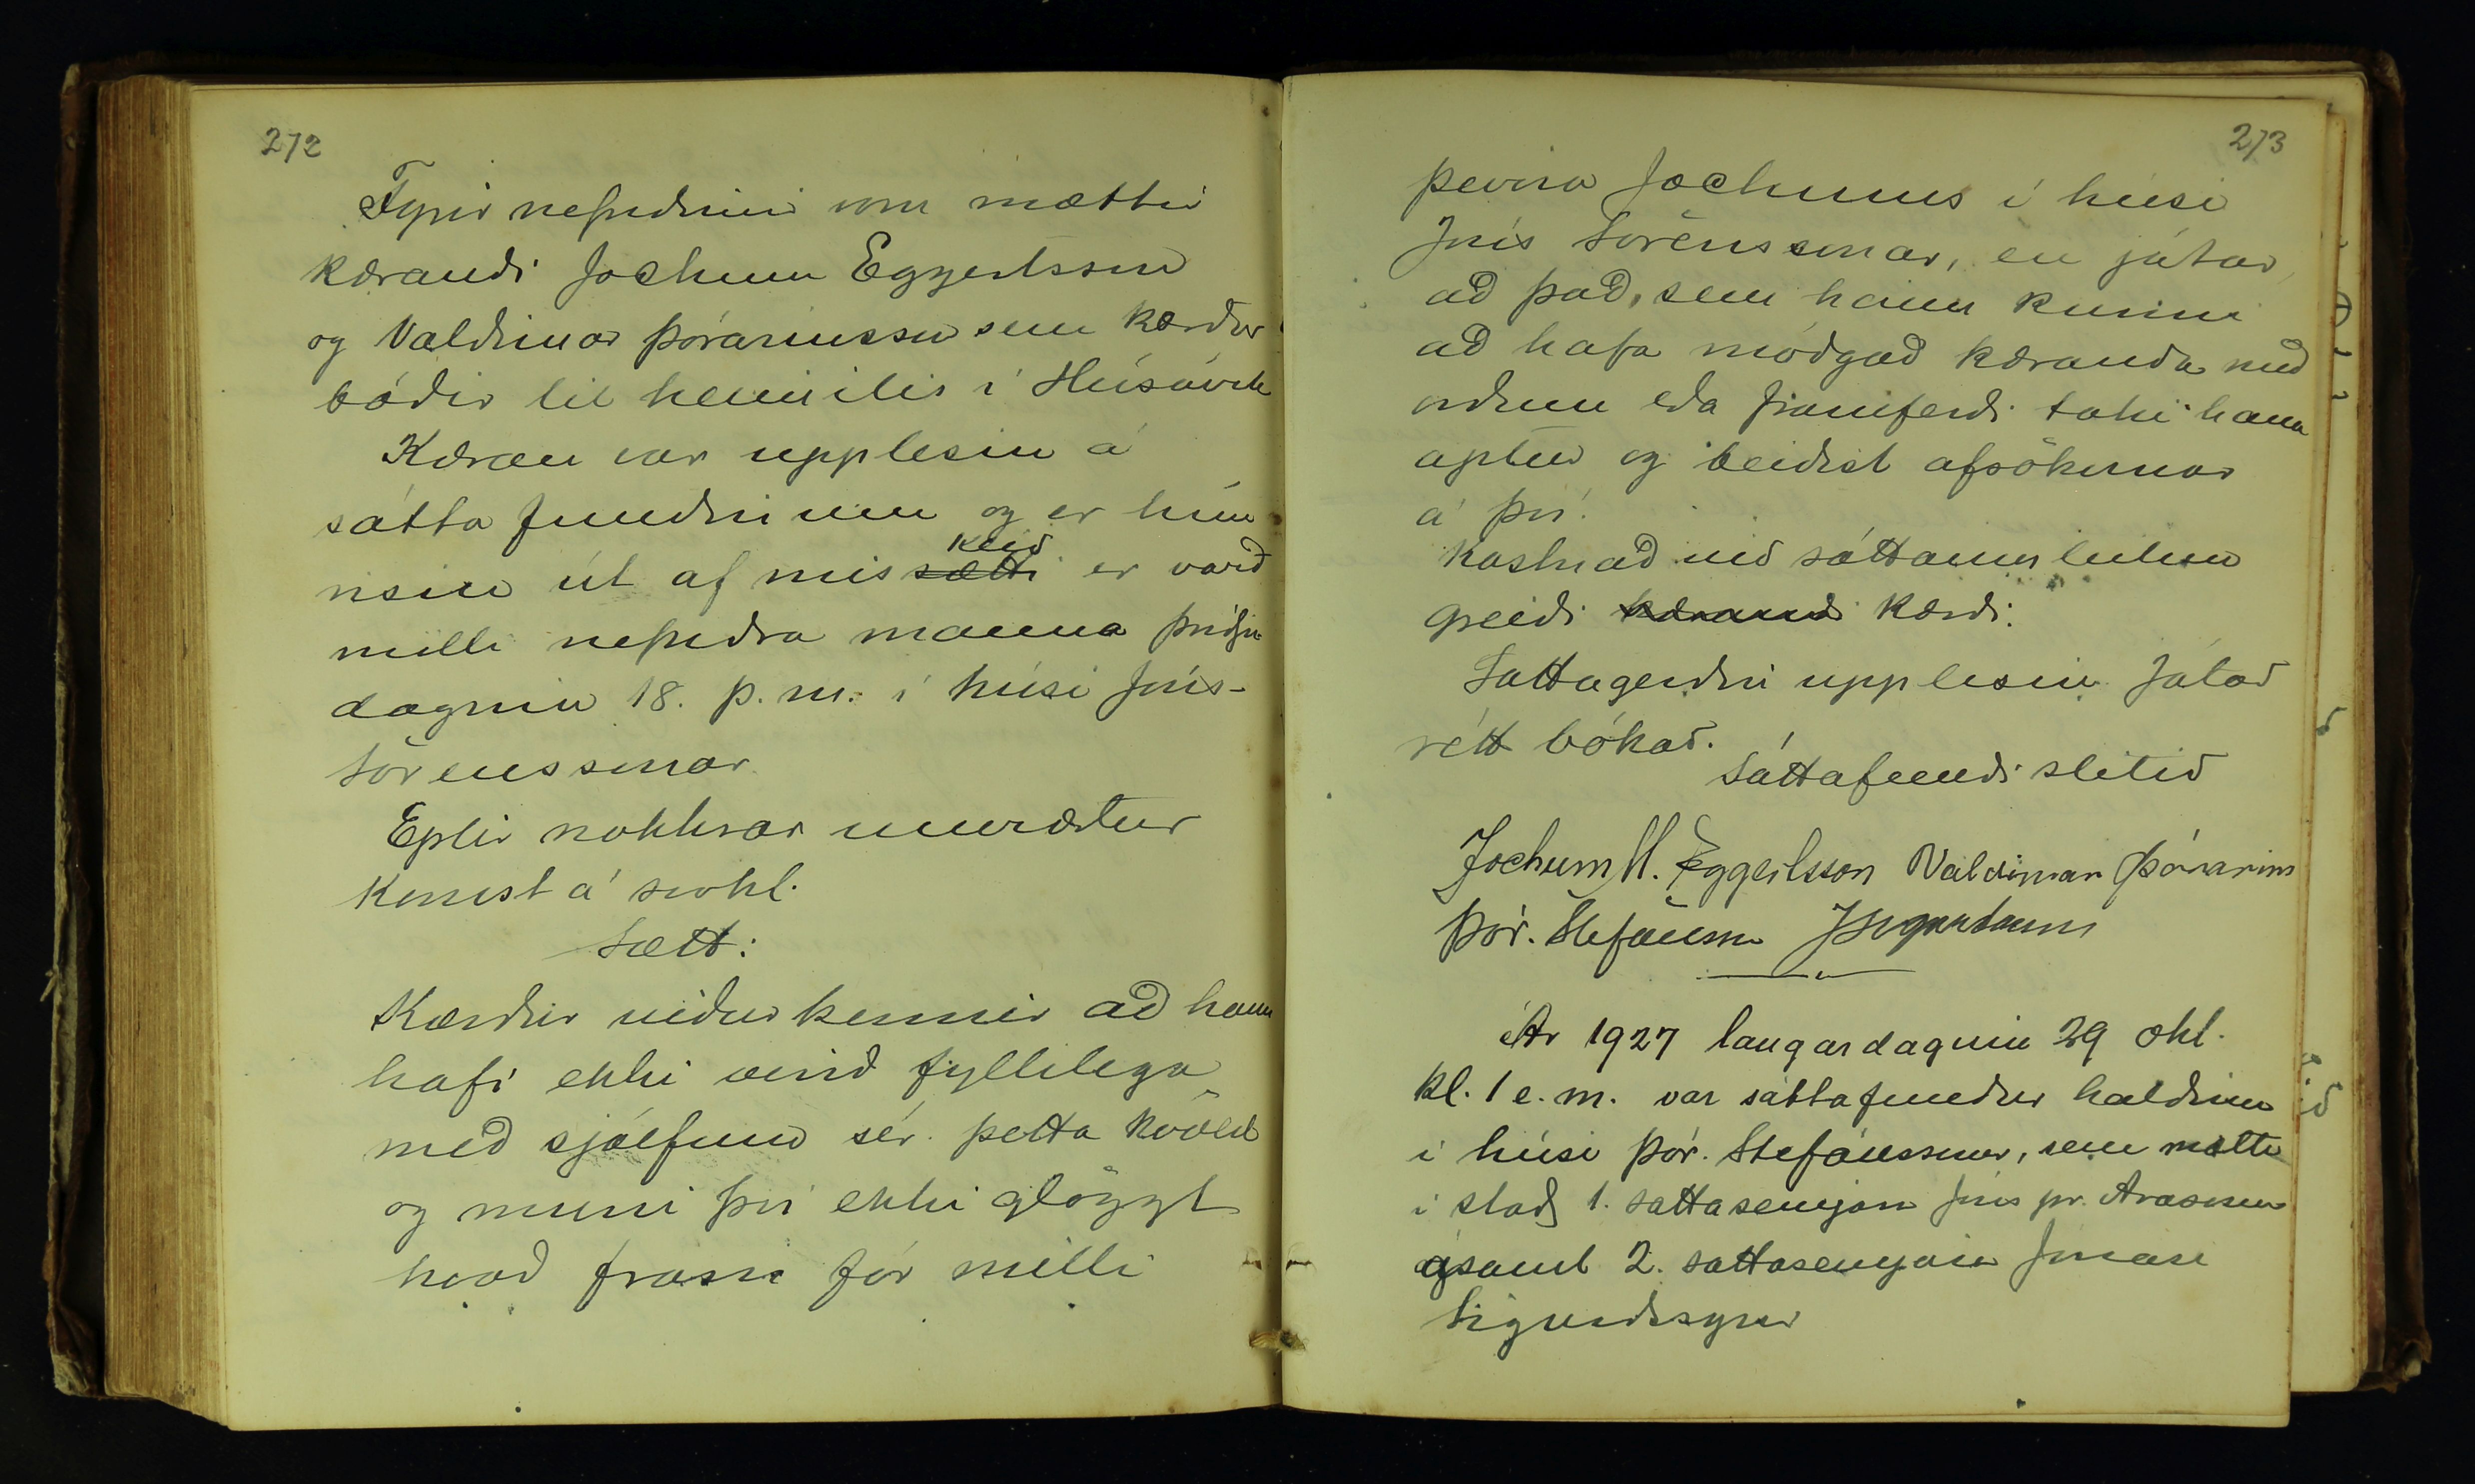 272
Fyrir nefndinni voru mættir
kærandi Jochum Eggertsson
og Valdimar Þórarinsson sem kærður
báðir til heimilis í Húsavík
Kæran var upplesin á
sátta fundinum og er hún
risin út af mis sætti klíð er varð
milli nefndra manna þriðju
daginn 18. þ. m. í húsi Jóns
Sörenssonar
Eptir nokkrar umræður
komst á svohl.
Sætt:
Kærður viðurkennir að hann
hafi ekki verið fyllilega
með sjálfum sér þetta kvöld
og muni því ekki glöggt
hvað fram fór milli
273
þeirra Jochums í húsi
Jóns Sörenssonar, en játar
að það, sem hann kunni
að hafa móðgað kæranda með
orðum eða framferði taki hann
aptur og beiðist afsökunar
á því.
Kostnað við sáttaumleitun
greiði kærandi kærði.
Sáttagerðin upplesin Játað
rétt bókað.
Sáttafundi slitið
Jochum M. Eggertsson Valdimar Þórarins
Þór. Stefánsson JSigurdsson
Ár 1927 laugardaginn 29 okt.
kl. 1 e. m. var sáttafundur haldinn
í húsi Þór. Stefánssonar, sem mætti
í stað 1. sáttasemjara Jóns pr. Arasonar
ásamt 2. sáttasemjara Jónasi
Sigurðssyni